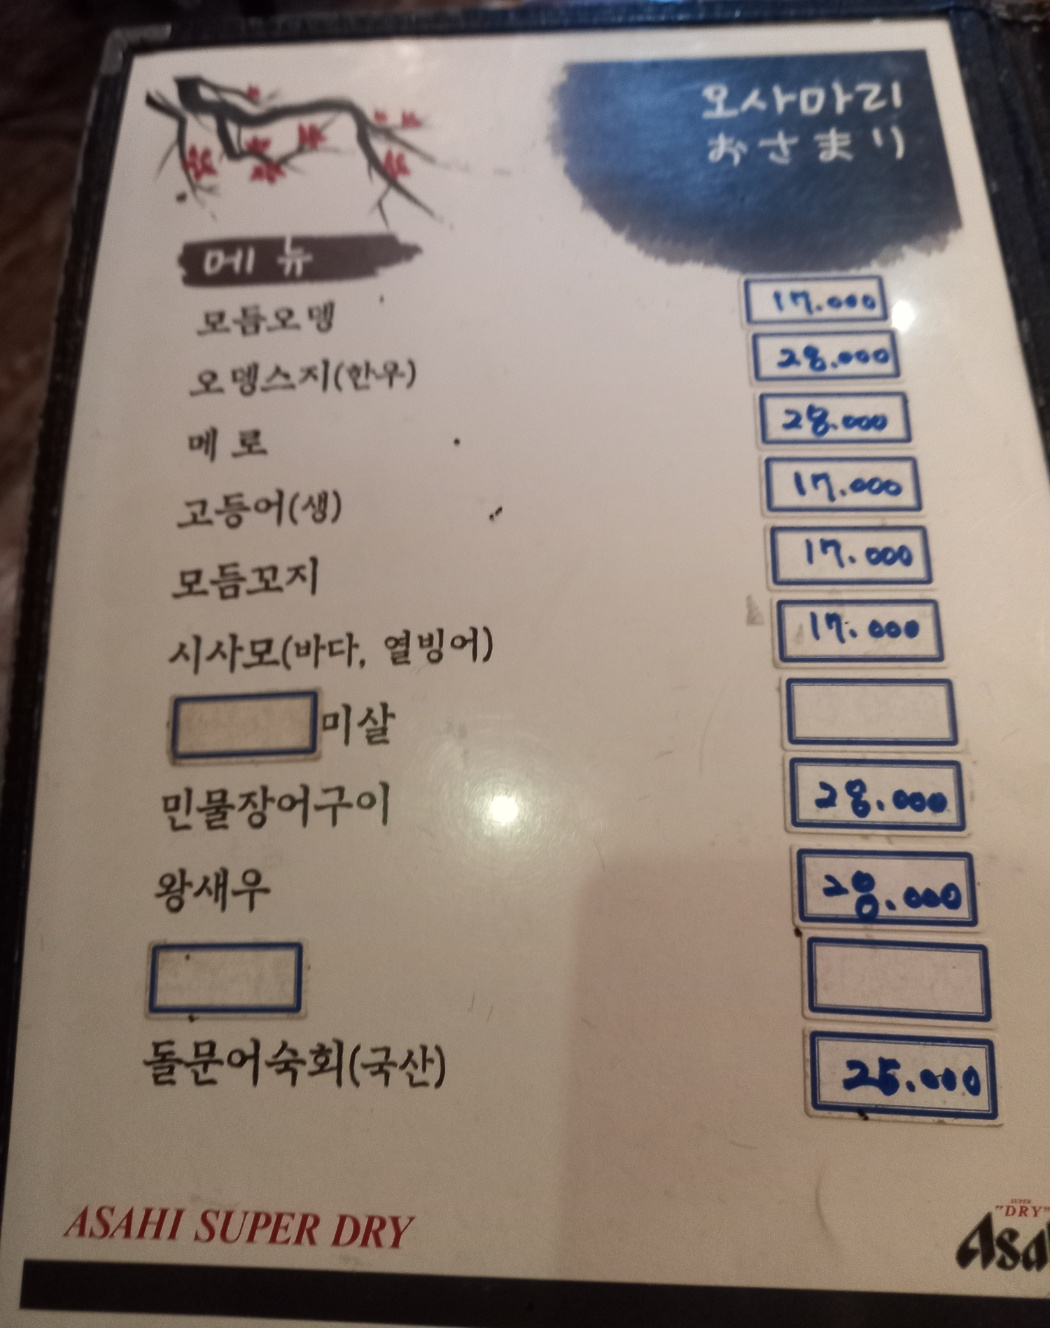 오사마리
おさまり
메뉴
모듬오뎅 17.000
오뎅스지(한우) 28.000
메로 28.000
고등어(생) 17.000
모듬꼬지 17.000
시사모(바다, 열빙어) 17.000
미살
민물장어구이 28.000
왕새우 28.000
돌문어숙회(국산) 25.000
ASAHI SUPER DRY
SUPER
"DRY"
Asa